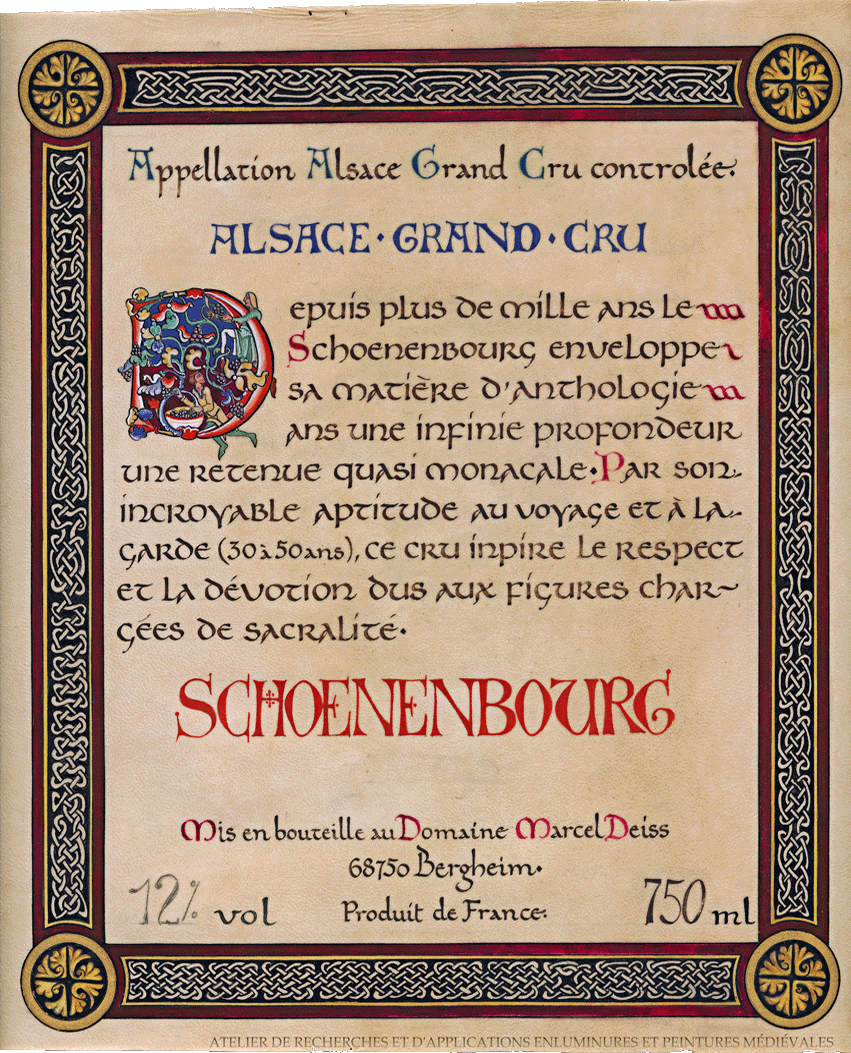 Appellation Alsace Grand Cru controlée.
ALSACE · GRAND · CRU
Depuis plus de mille ans le
Schoenenbourg enveloppe
sa matière d'anthologie
ans une infinie profondeur
une retenue quasi monacale. Par son
incroyable aptitude au voyage et à la
garde (30 à 50 ans), ce cru inpire le respect
et la dévotion dus aux figures char~
gées de sacralité.
SCHOENENBOURG
Mis en bouteille au Domaine Marcel Deiss
68750 Bergheim.
12% vol
Produit de France.
750 ml
ATELIER DE RECHERCHES ET D'APPLICATIONS ENLUMINURES ET PEINTURES MÉDIÉVALES